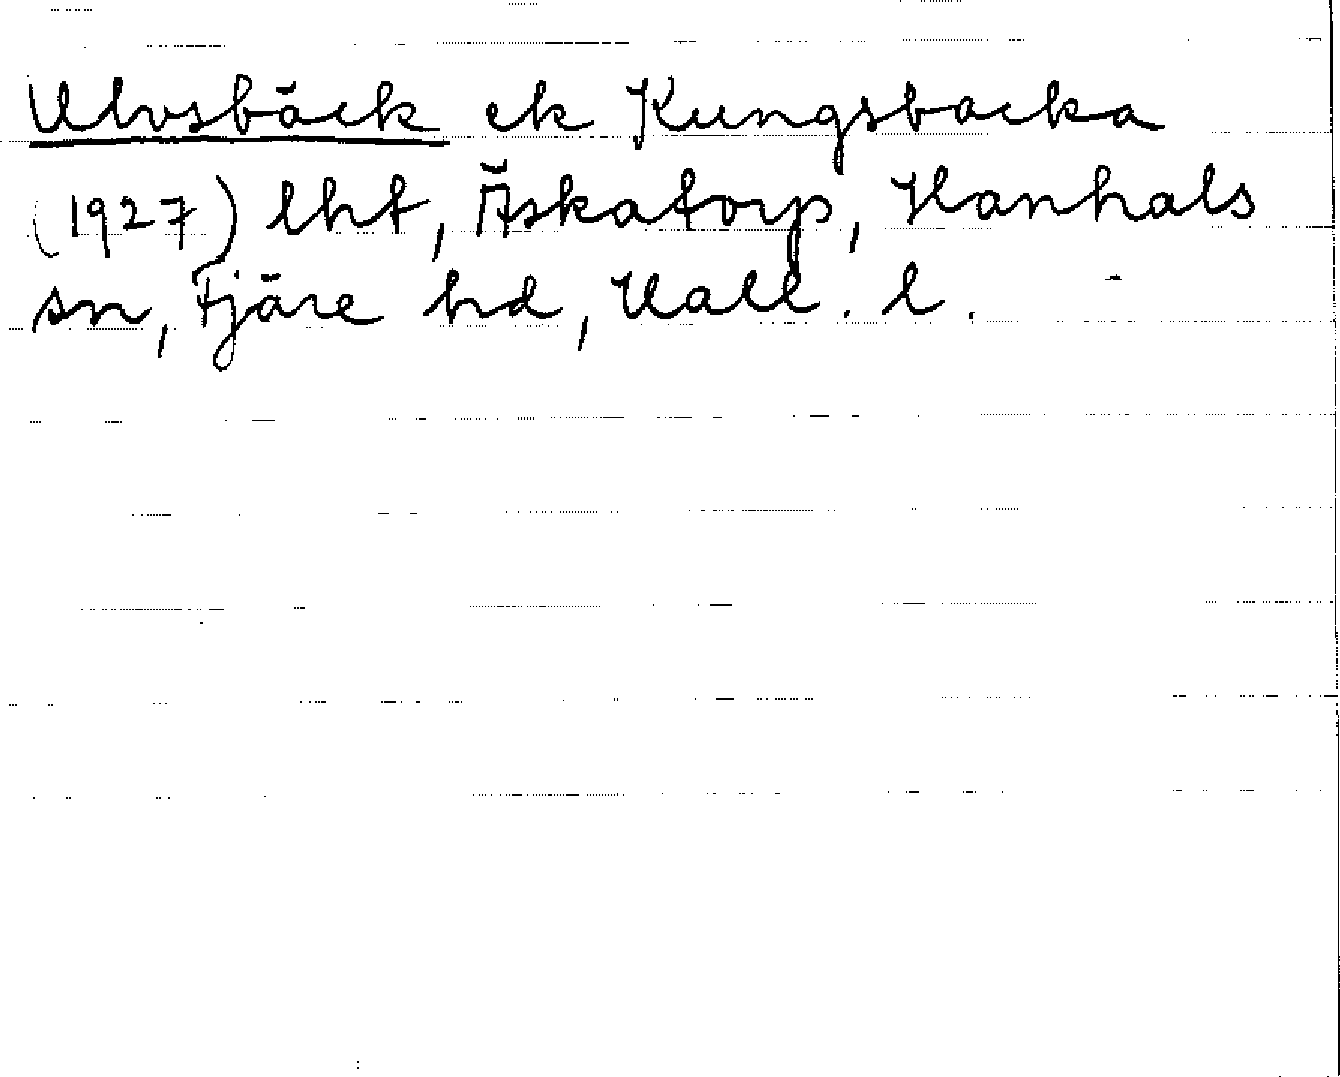 Ulvsbäck ek Kungsbacka
(1927) lht, Äskatorp, Hanhals
sn, Fjäre hd, Hall. l.